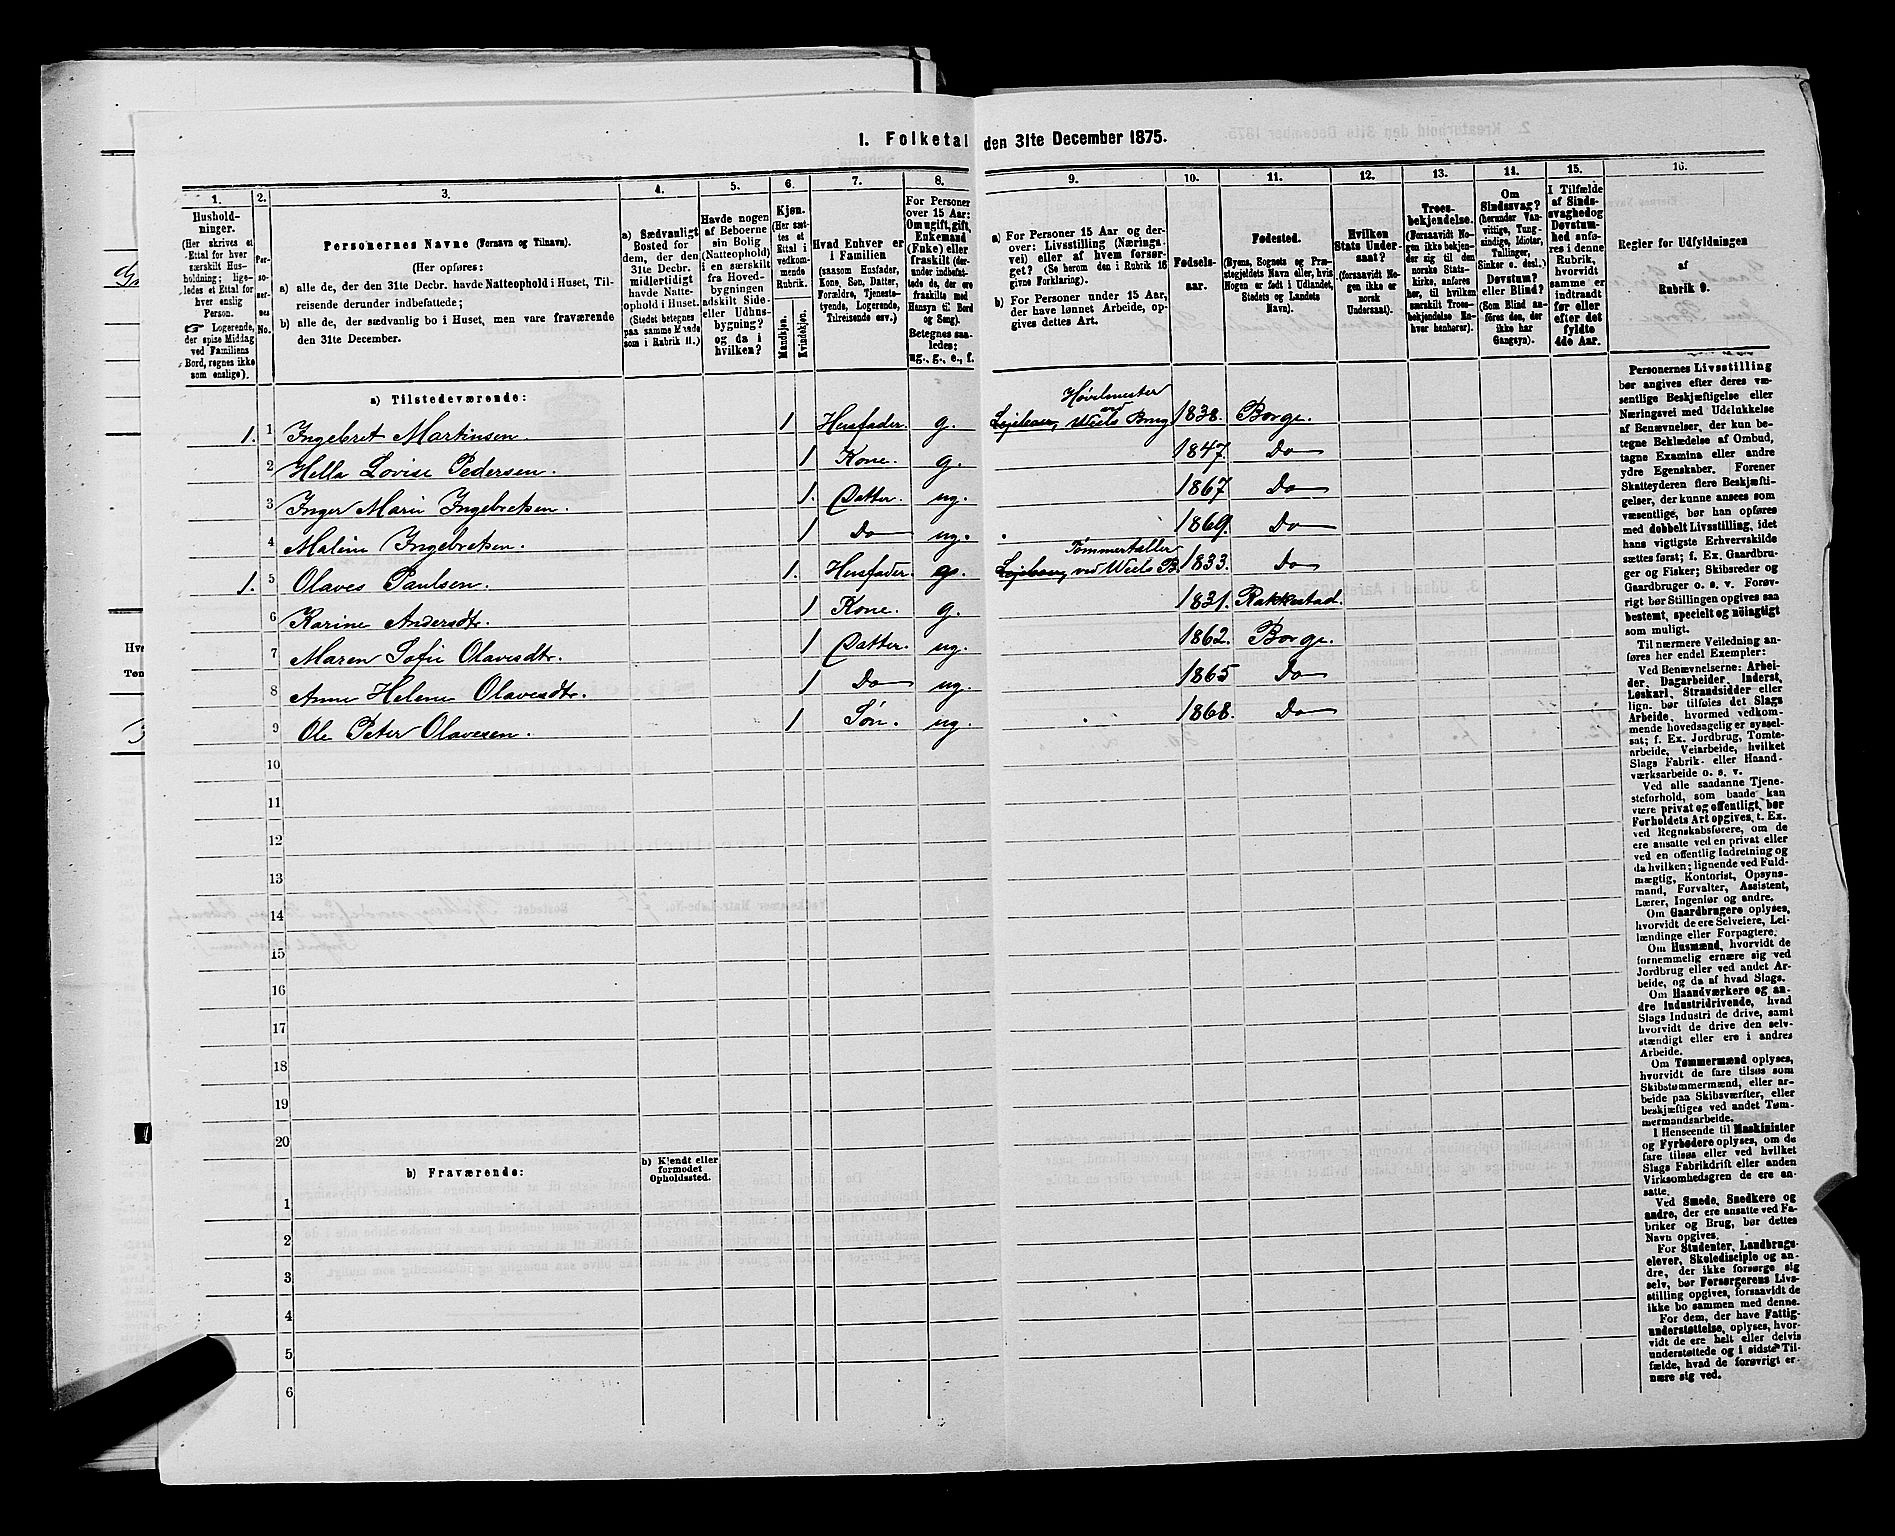 1. Folketal den 31te December 1875.
1.
Hushold-
ninger.
(Her skrives et
Ettal for hver
særskilt Hus-
holdning; lige-
ledes et Ettal for
hver enslig
Person.
☞ Logerende,
der spise Middag
ved Familiens
Bord, regnes ikke
som enslige).
2.
Per-
so-
ner-
nes
No.
3.
Personernes Navne (Fornavn og Tilnavn).
(Her opføres:
a) alle de, der den 31te Decbr. havde Natteophold i Huset, Til-
reisende derunder indbefattede;
b) alle de, der sædvanlig bo i Huset, men vare fraværende
den 31te December.
4.
a) Sædvanligt
Bosted for
dem, der den
31te Decbr.
midlertidigt
havde Natte-
ophold i Huset.
(Stedet betegnes
paa samme Maade
som i Rubrik 11.)
5.
Havde nogen
af Beboerne
sin Bolig
(Natteophold)
i en særskilt
fra Hoved-
bygningen
adskilt Side-
eller Udhus-
bygning?
og da i
hvilken?
6.
Kjøn.
(Her sæt-
tes et
Ettal i
vedkom-
mende
Rubrik.
Mandkjøn.
Kvindekjøn.
7.
Hvad Enhver er
i Familien
(saasom Husfader,
Kone, Søn, Datter,
Forældre, Tjeneste-
tyende, Logerende,
Tilreisende osv.)
8.
For Personer
over 15 Aar:
Om ugift, gift,
Enkemand
(Enke) eller
fraskilt (der-
under indbefat-
tede de, der ere
fraskilte med
Hensyn til Bord
og Seng).
Betegnes saa-
ledes:
ug., g., e., f.
9.
a) For Personer 15 Aar og der-
over: Livsstilling (Nærings-
vei) eller af hvem forsør-
get? (Se herom den i Rubrik 16
givne Forklaring).
b) For Personer under 15 Aar,
der have lønnet Arbeide, op-
gives dettes Art.
10.
Fødsels-
aar.
11.
Fødested.
(Byens, Sognets og Præ-
stegjeldets Navn eller, hvis
Nogen er født i Udlandet,
Stedets og Landets
Navn).
12.
Hvilken
Stats Under-
saat?
(forsaavidt No-
gen ikke er
norsk
Undersaat).
13.
Troes-
bekjendelse.
(Forsaavidt No-
gen ikke bekjen-
der sig til den
norske Stats-
kirke, anføres
her, til hvilken
særskilt Troes-
bekjendelse En-
hver henhører).
14.
Om
Sindssvag?
(herunder Van-
vittige, Tung-
sindige, Idioter,
Tullinger,
Sinker o. desl.).
Døvstum?
eller Blind?
(Som Blind an-
føres den, der
ikke har
Gangsyn).
15.
I Tilfælde
af Sinds-
svaghed og
Døvstum-
hed anfø-
res i denne
Rubrik,
hvorvidt
samme er
indtraadt
før eller
efter det
fyldte
4de Aar.
16.
Regler for Udfyldningen
af
Rubrik 9.
a) Tilstedeværende:
1. 1 Ingebret Martinsen. 1 Husfader. g. Høvelmester ved Wiels Brug 1838. Borge.
2 Hella Lovise Pedersen. 1 Kone. g. 1847. Do
3 Inger Marie Ingebretsen. 1. Datter. ug. 1867. Do
4 Maline Ingebretsen. 1 Do ug. 1869. Do
1. 5 Olaves Paulsen. 1. Husfader. g. Tømmertæller ved Wiels B. 1833. Do
6 Karine Andersdtr. 1 Kone. g. 1831. Rakkestad.
7 Maren Sofie Olavesdtr. 1 Datter. ug. 1862. Borge.
8 Anne Helene Olavesdtr. 1 Do ug. 1865 Do
9 Ole Peter Olavesen. 1 Søn. ug. 1868. Do
10
11
12
13
14
15
16
17
18
19
20
b) Fraværende:
b) Kjendt eller
formodet
Opholdssted.
1
2
3
4
5
6
Personernes Livsstilling
bør angives efter deres væ-
sentlige Beskjæftigelse eller
Næringsvei med Udelukkelse
af Benævnelser, der kun be-
tegne Beklædelse af Ombud,
tagne Examina eller andre
ydre Egenskaber. Forener
Skatteyderen flere Beskjæfti-
gelser, der kunne ansees som
væsentlige, bør han opføres
med dobbelt Livsstilling, idet
hans vigtigste Erhvervskilde
sættes først; f. Ex. Gaardbru-
ger og Fisker; Skibsreder og
Gaardbruger o. s. v. Forøv-
rigt bør Stillingen opgives saa
bestemt, specielt og nøiagtigt
som muligt.
Til nærmere Veiledning an-
føres her endel Exempler:
Ved Benævnelserne: Arbei-
der, Dagarbeider, Inderst,
Løskarl, Strandsidder eller
lign. bør tilføies det Slags
Arbeide, hvormed vedkom-
mende hovedsagelig er syssel-
sat; f. Ex. Jordbrug, Tomte-
arbeide, Veiarbeide, hvilket
Slags Fabrik- eller Haand-
værksarbeide o. s. v.
Ved alle saadanne Tjene-
steforhold, som baade kan
være privat og offentligt, bør
Forholdets Art opgives, t. Ex.
ved Regnskabsførere, om de
ere ansatte ved en privat eller
ved en offentlig Indretning og
da hvilken; lignende ved Fuld-
mægtig, Kontorist, Opsyns-
mand, Forvalter, Assistent,
Lærer, Ingeniør og andre.
Om Gaardbrugere oplyses,
hvorvidt de ere Selveiere, Lei-
lændinge eller Forpagtere.
Om Husmænd, hvorvidt de
fornemmelig ernære sig ved
Jordbrug eller ved andet Ar-
beide, og da af hvad Slags.
Om Haandværkere og an-
dre Industridrivende, hvad
Slags Industri de drive, samt
hvorvidt de drive den selv-
stændigt eller ere i andres
Arbeide.
Om Tømmermænd oplyses,
hvorvidt de fare tilsøs som
Skibstømmermænd, eller ar-
beide paa Skibsværfter, eller
beskjæftiges ved andet Tøm-
mermandsarbeide.
I Henseende til Maskinister
og Fyrbødere oplyses, om de
fare tilsøs eller ved hvilket
Slags Fabrikdrift eller anden
Virksomhedsgren de ere an-
satte.
Ved Smede, Snedkere og
andre, der ere ansatte ved Fa-
briker og Brug, bør dettes
Navn opgives.
For Studenter, Landbrugs-
elever, Skoledisciple og an-
dre, der ikke forsørge sig
selv, bør Forsørgerens Livs-
stilling opgives, forsaavidt de
ikke bo sammen med denne.
For dem, der have Fattig-
understøttelse, oplyses, hvor-
vidt de ere helt eller delvis
understøttede og i sidste Til-
fælde, hvad de forøvrigt er-
nære sig ved.